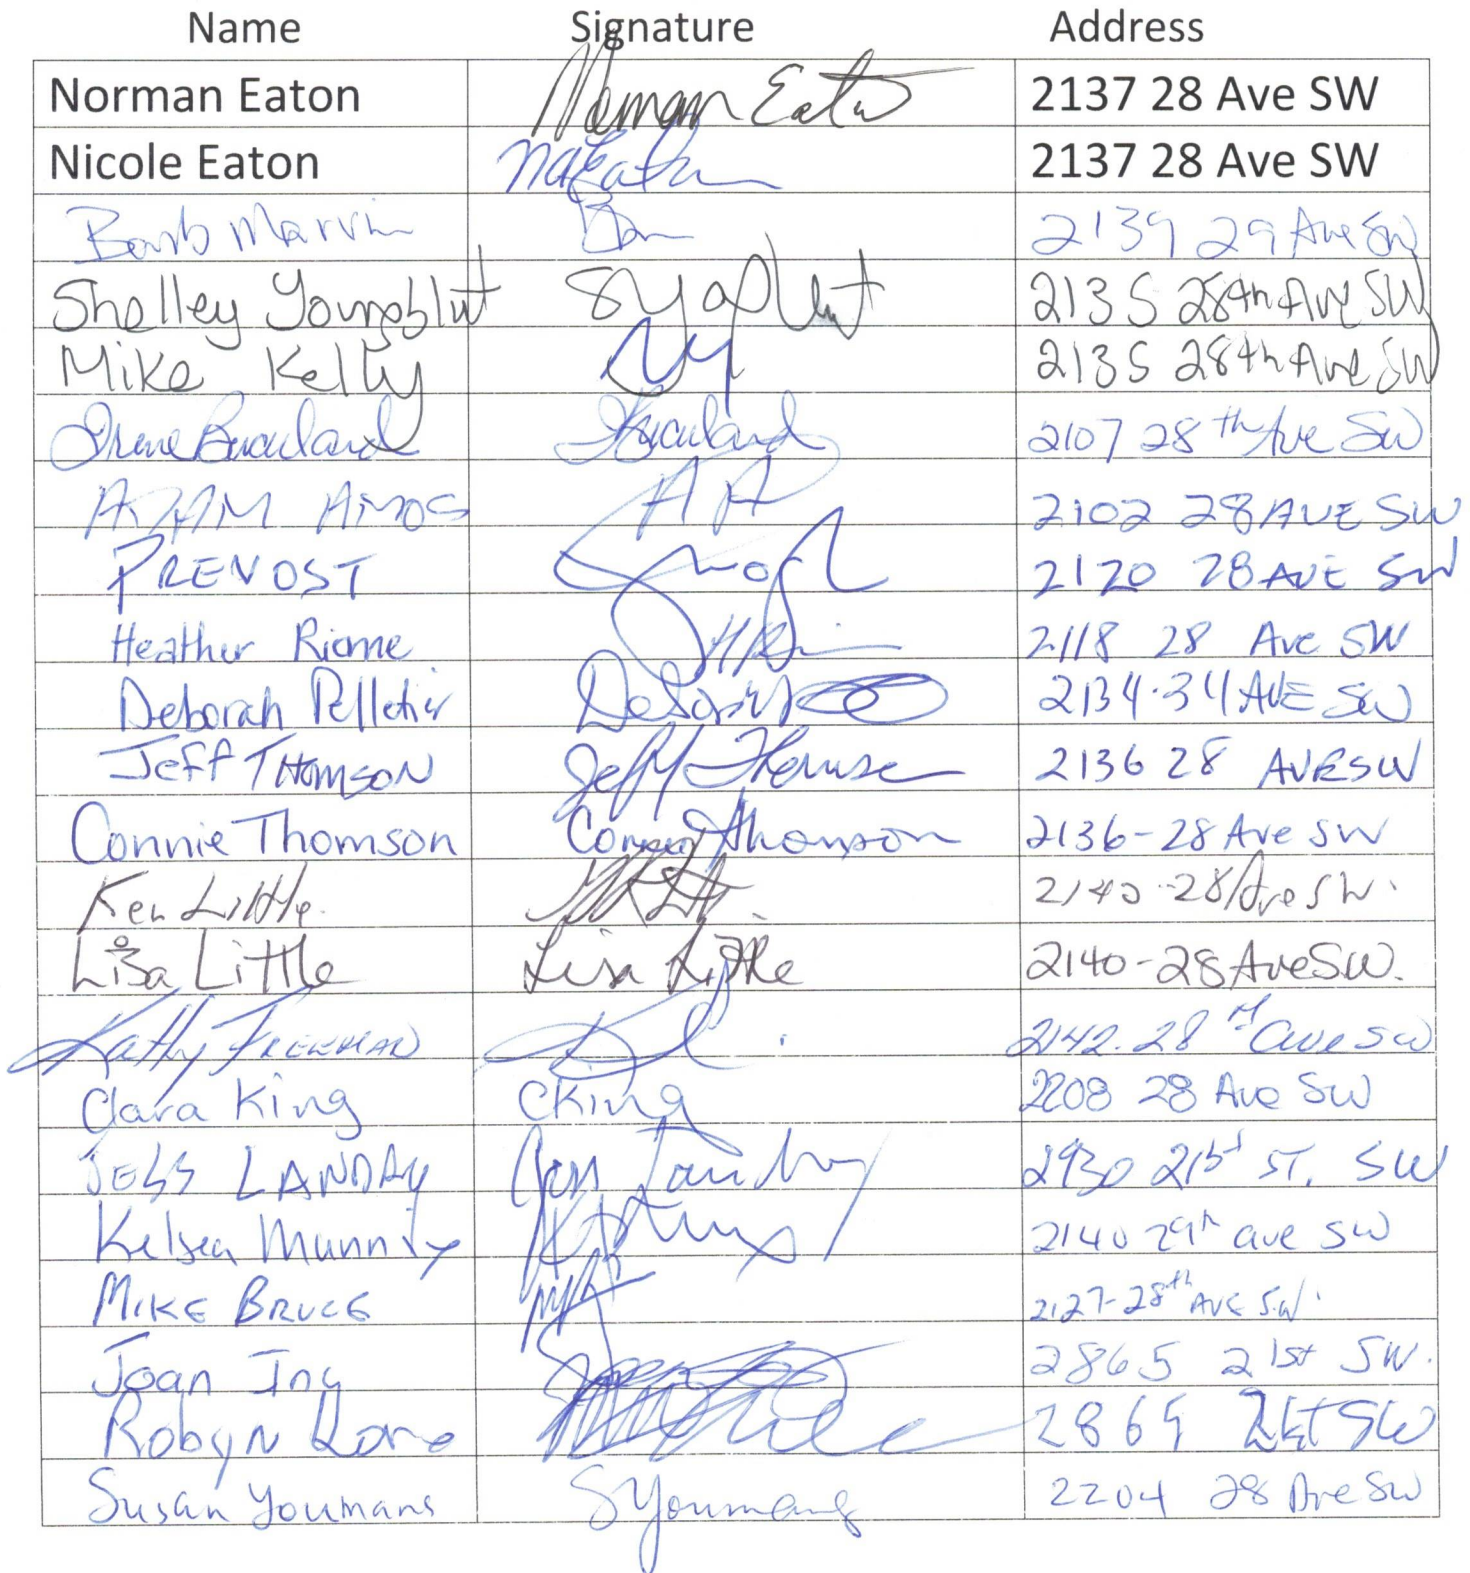 Name Signature Address
Norman Eaton Norman Eaton 2137 28 Ave SW
Nicole Eaton 2137 28 Ave SW
Barb Marvin 2139 29 Ave SW
Shelley Youngblut 2135 28th Ave SW
Mike Kelly 2135 28th Ave SW
Irene 2107 28th Ave SW
AMOS 2102 28 AVE SW
PRENOST 2120 28 AVE SW
Heather 2118 28 Ave SW
Deborah Pelletier 2134·34 AVE SW
Jeff THOMSON Jeff Thomson 2136 28 AVE SW
Connie Thomson Connie Thomson 2136-28 Ave SW
Ken Little. 2140-28 Ave SW.
Lisa Little Lisa Little 2140-28 Ave SW.
Kathy FREEMAN 2142. 28 Ave SW
Clara King CKing 2208 28 Ave SW
JESS LANDRY Jess Landry 2930 21st ST. SW
Kelsea 2140 29th ave SW
MIKE BRUCE 2127-28th AVE S.W.
Joan Ing 2865 21st SW.
Robyn SW
Susan Youmans SYoumans 2204 28 Ave SW